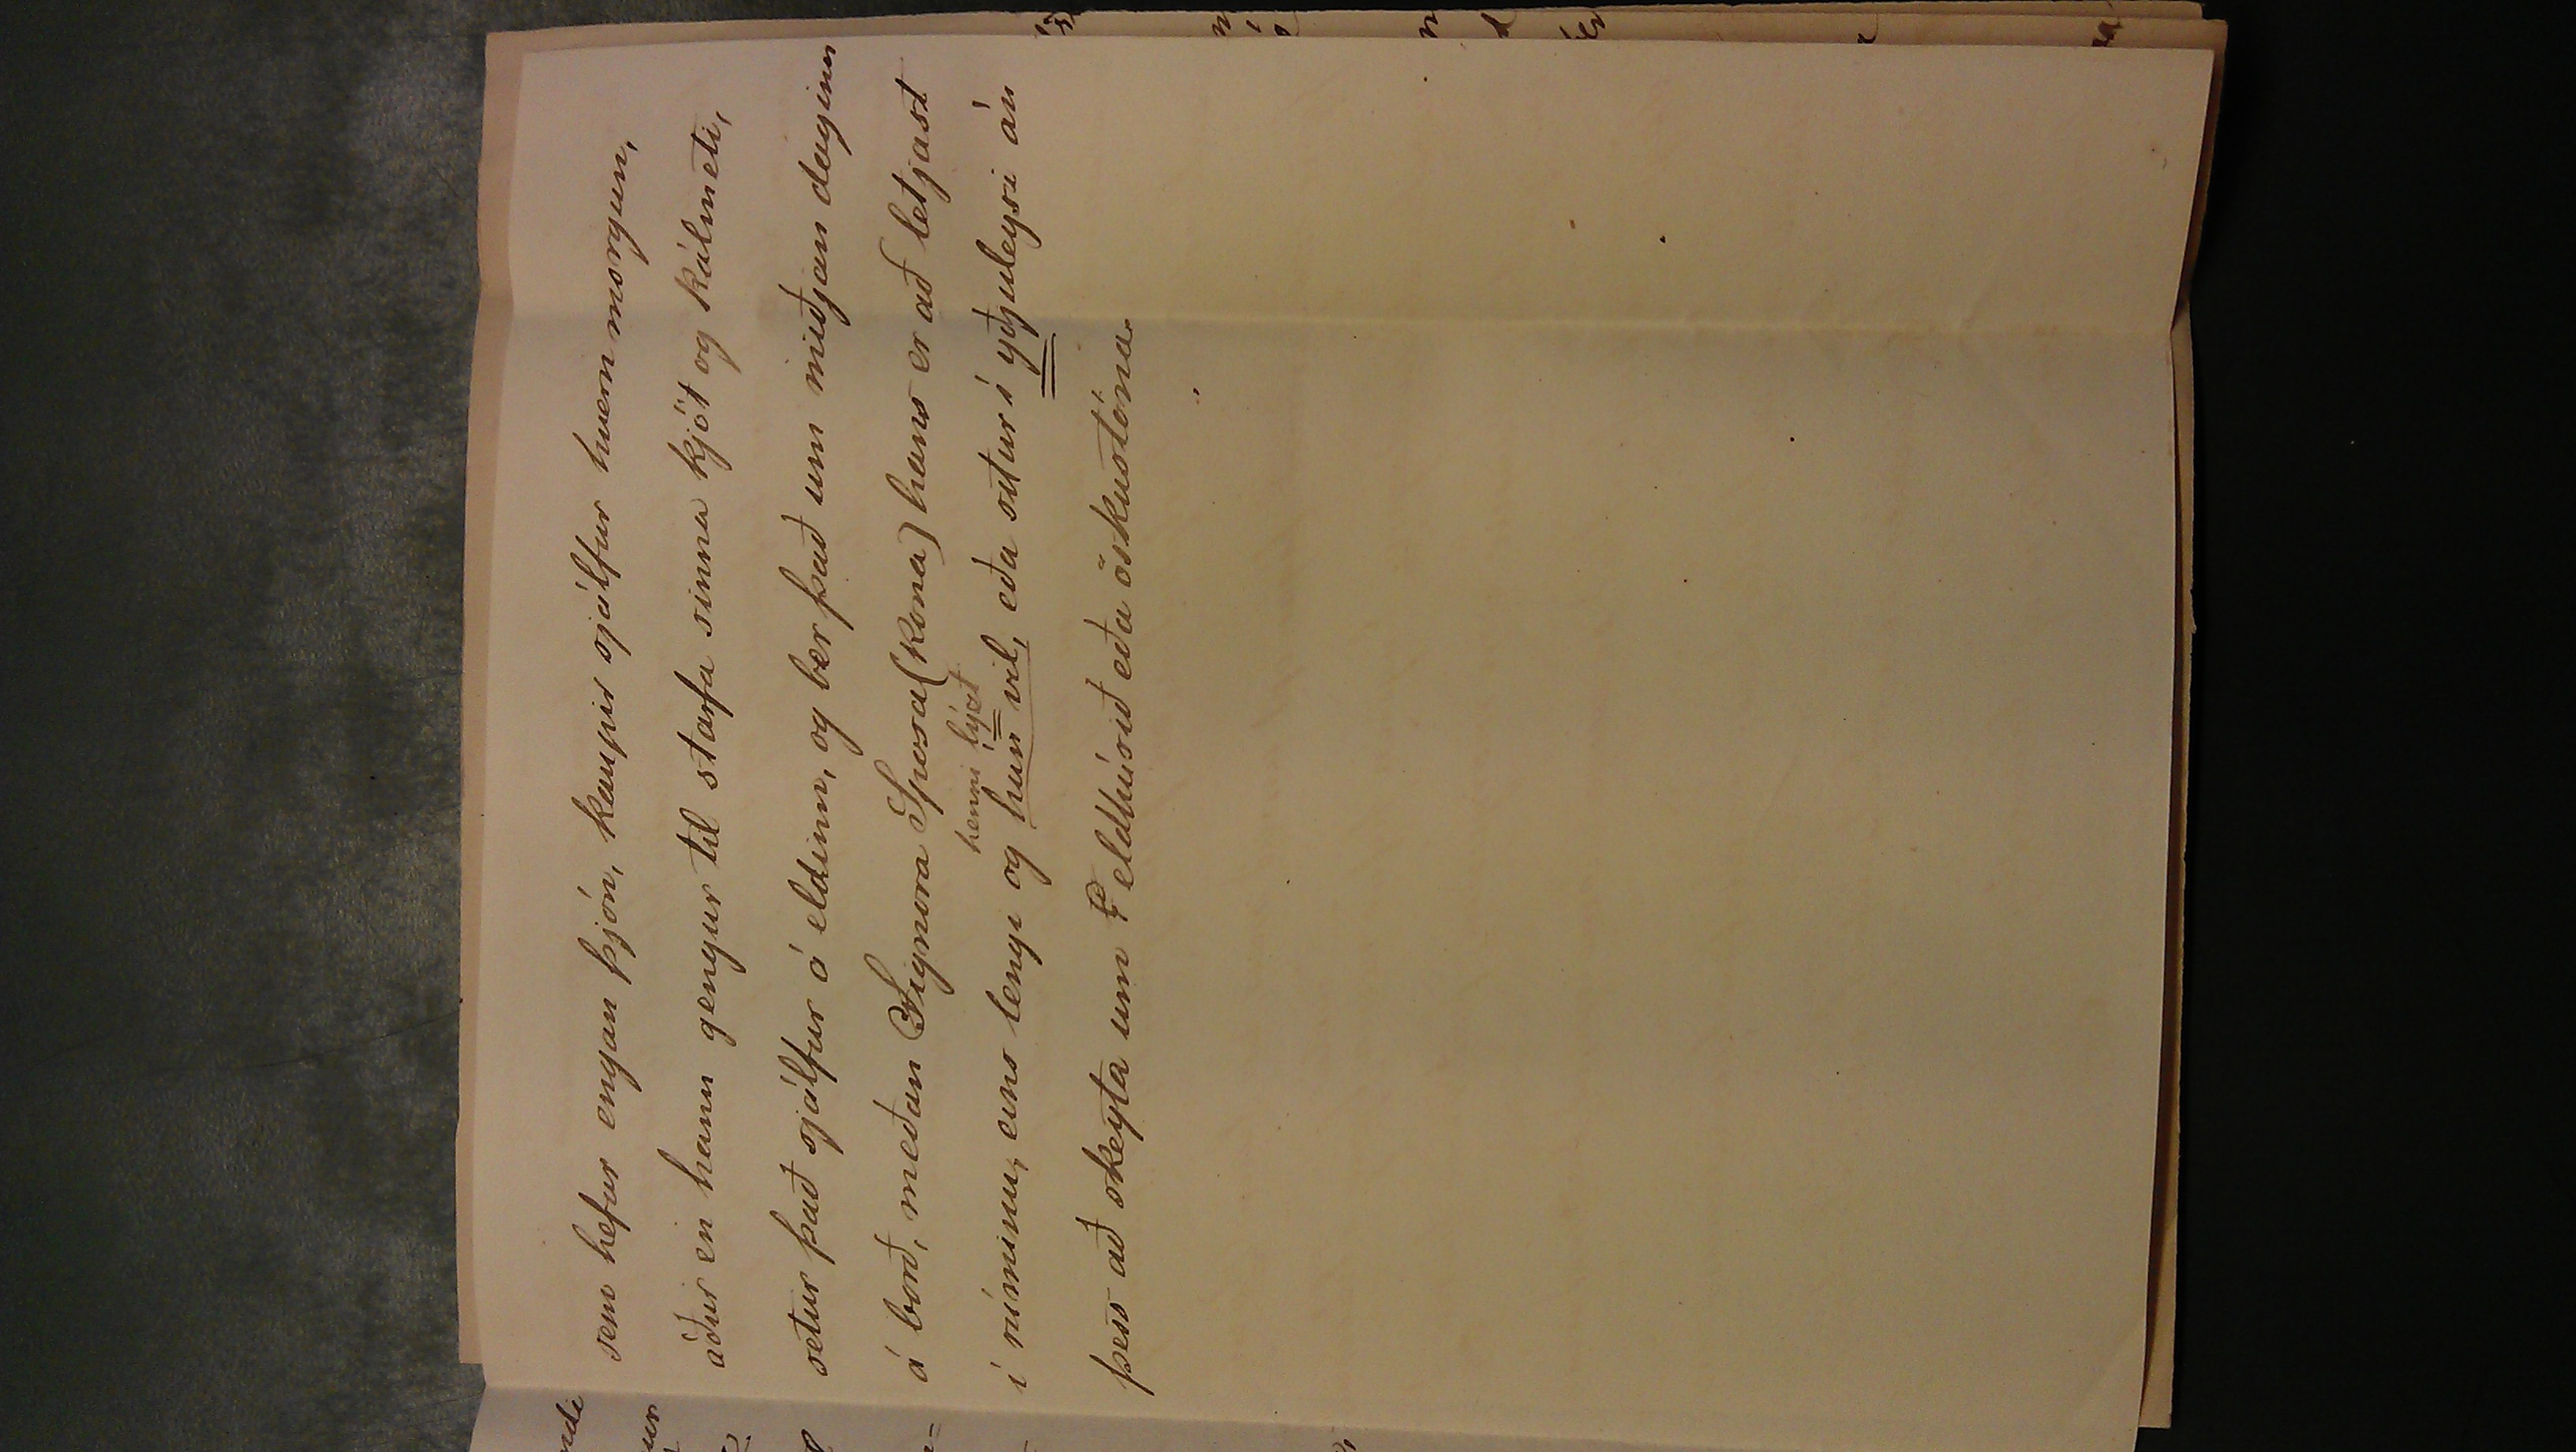 sem hefur engan þjón, kaupir sjálfur hvern morgun,
áður en hann gengur til starfa sinna kjöt og kálmeti,
setur það sjálfur á eldinn, og ber það um miðjan daginn
á borð, meðan Signora Sposa (kona) hans er að letjast
henni lýst
í rúminu, eins lengi og hun vil, eða situr í yðjuleysi án
þess að skeyta um eldhúsið eða öskustóna.